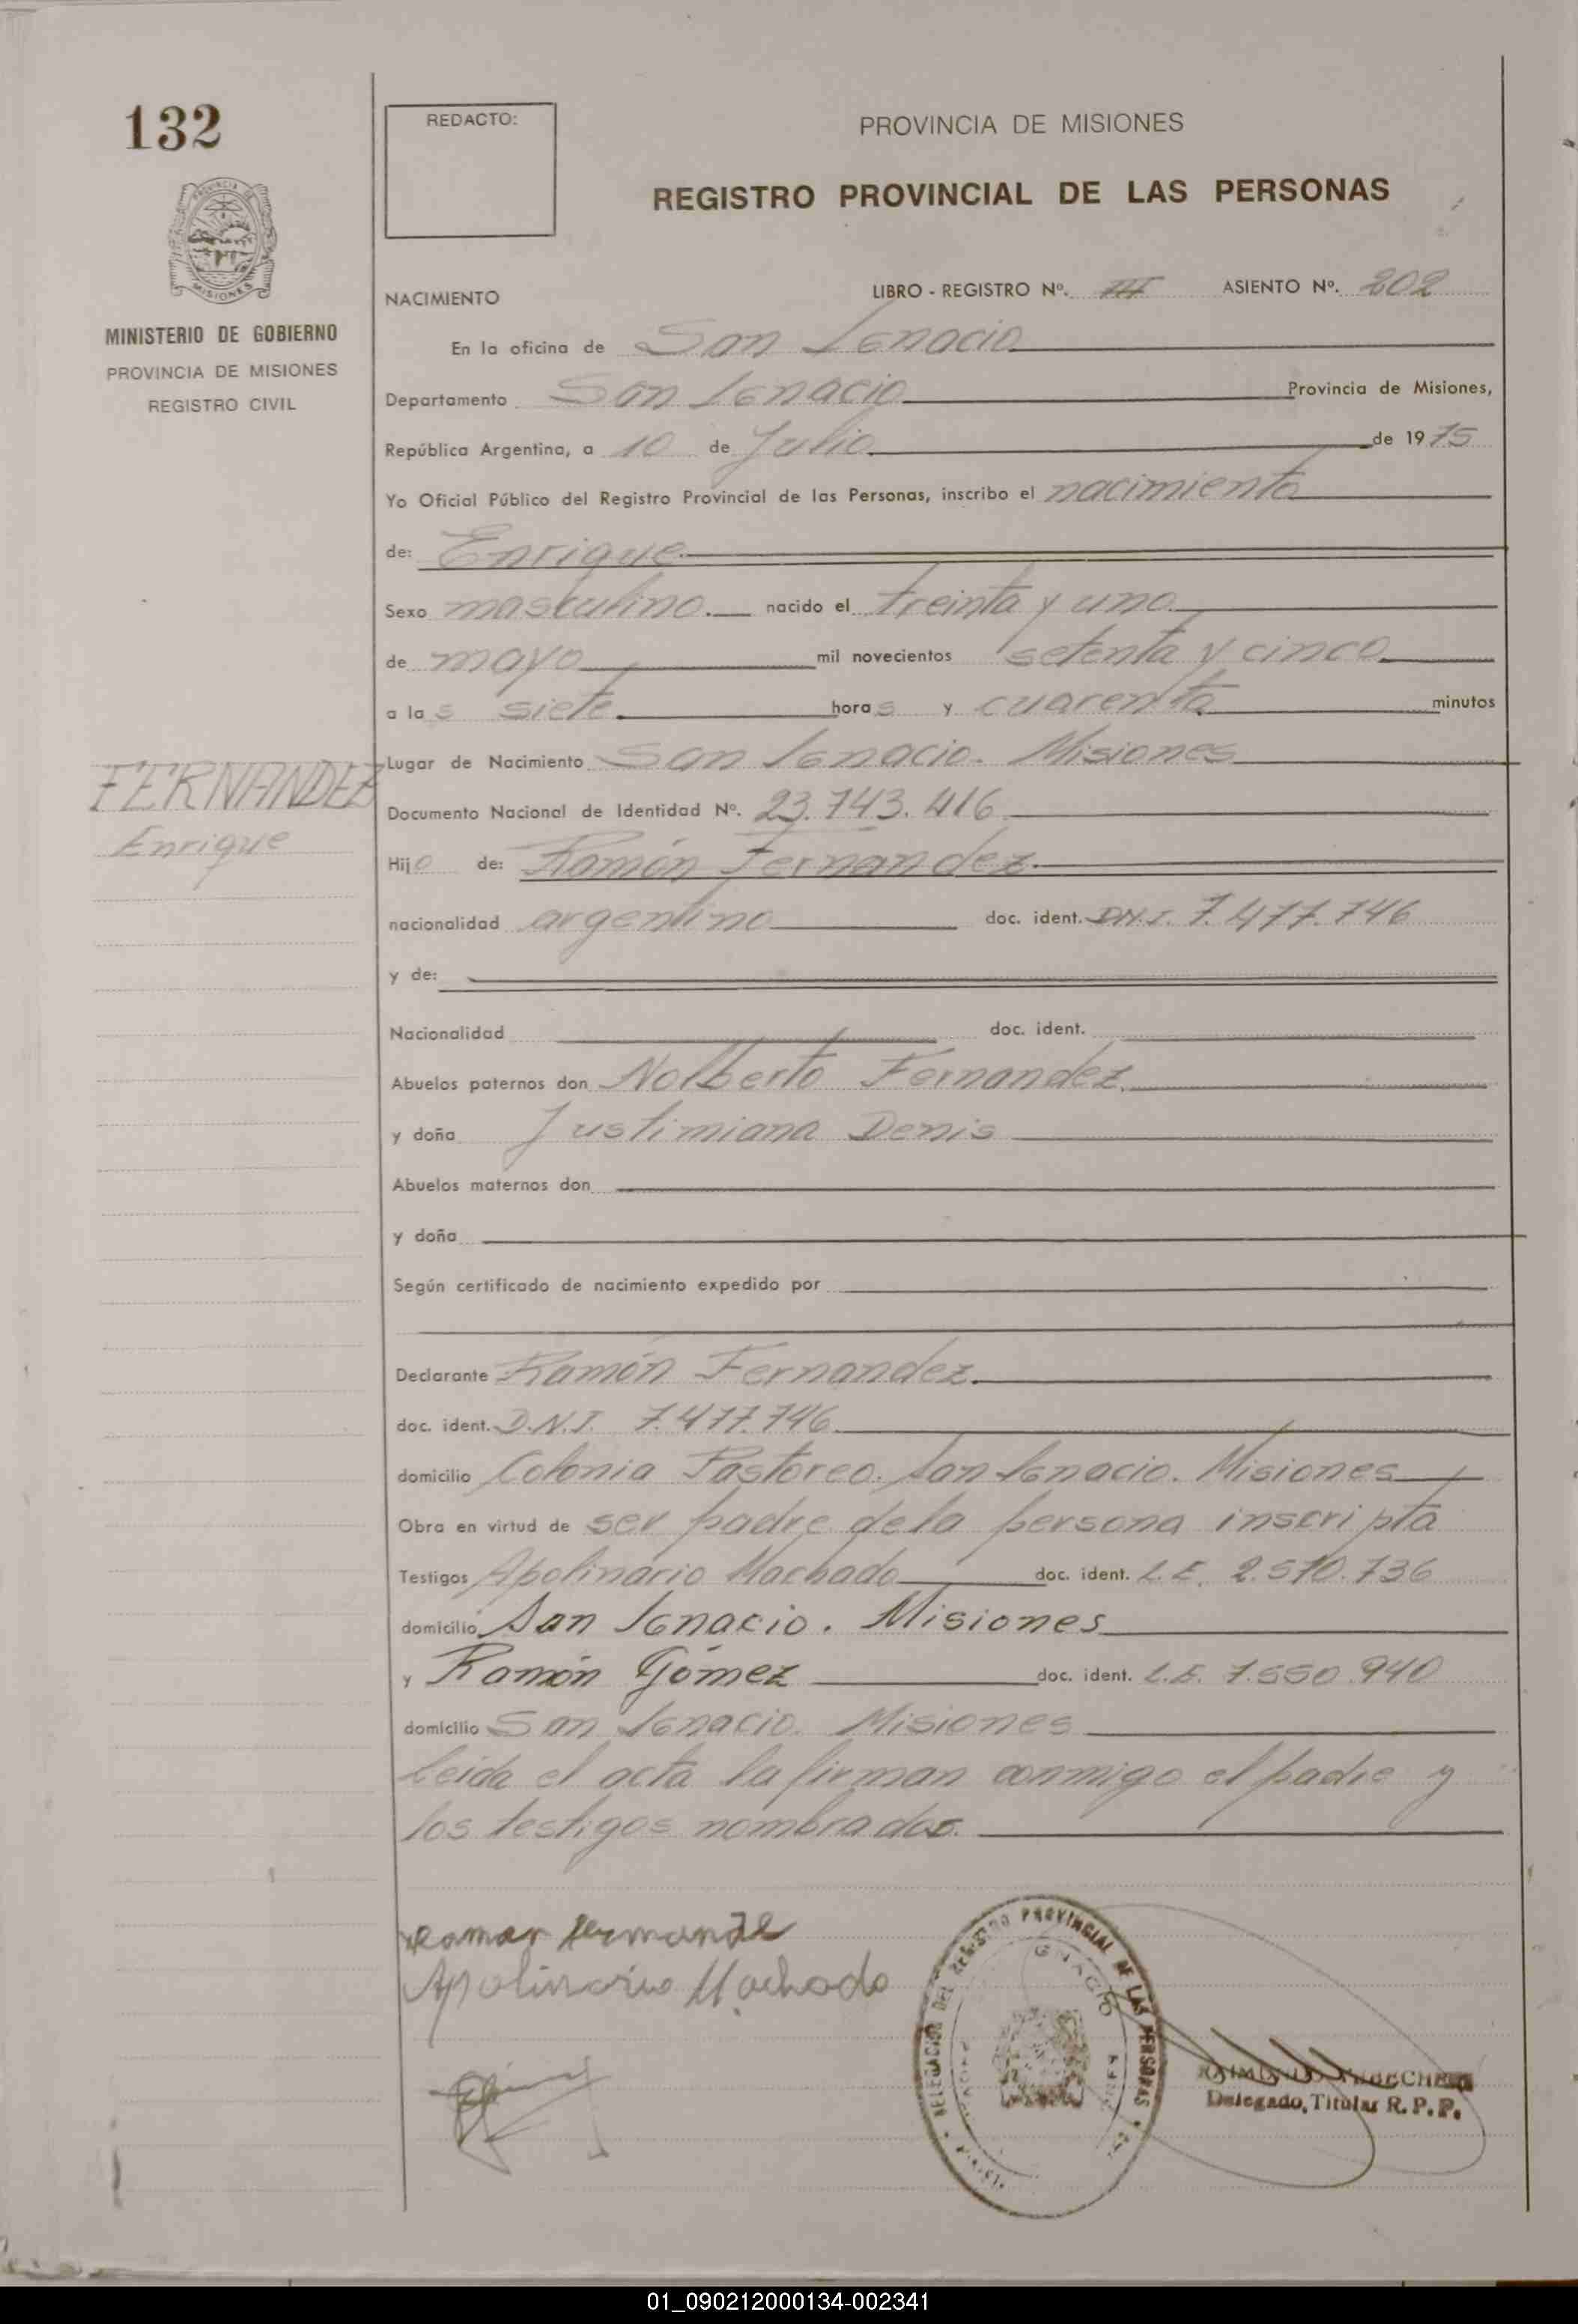 132
REDACTO:
PROVINCIA DE MISIONES
REGISTRO PROVINCIAL DE LAS PERSONAS
MISIONES
MINISTERIO DE GOBIERNO
PROVINCIA DE MISIONES
REGISTRO CIVIL
NACIMIENTO
LIBRO - REGISTRO Nº. III ASIENTO Nº. 202
En la oficina de San Ignacio
Departamento San Ignacio Provincia de Misiones,
República Argentina, a 10 de Julio de 1975
Yo Oficial Público del Registro Provincial de las Personas, inscribo el nacimiento
de: Enrique
Sexo masculino. nacido el treinta y uno
de mayo mil novecientos setenta y cinco
a las siete horas y cuarenta minutos
Lugar de Nacimiento San Ignacio. Misiones
FERNANDEZ
Enrique
Documento Nacional de Identidad Nº. 23.743.416
Hijo de: Ramón Fernandez
nacionalidad argentino doc. ident. D.N.I. 7.477.746
y de:
Nacionalidad doc. ident.
Abuelos paternos don Nolberto Fernandez
y doña Justimiana Denis
Abuelos maternos don
y doña
Según certificado de nacimiento expedido por
Declarante Ramón Fernandez
doc. ident. D.N.I. 7.477.746
domicilio Colonia Pastoreo. San Ignacio. Misiones
Obra en virtud de ser padre de la persona inscripta
Testigos Apolinario Machado doc. ident. L.E. 2.570.736
domicilio San Ignacio. Misiones
y Ramón Gómez doc. ident. L.E. 7.550.940
domicilio San Ignacio. Misiones
Leida el acta la firman conmigo el padre y
los testigos nombrados.
Apolinario Machado
DELEGACION DEL REGISTRO PROVINCIAL DE LAS PERSONAS
Delegado Titular R.P.P.
01_090212000134-002341